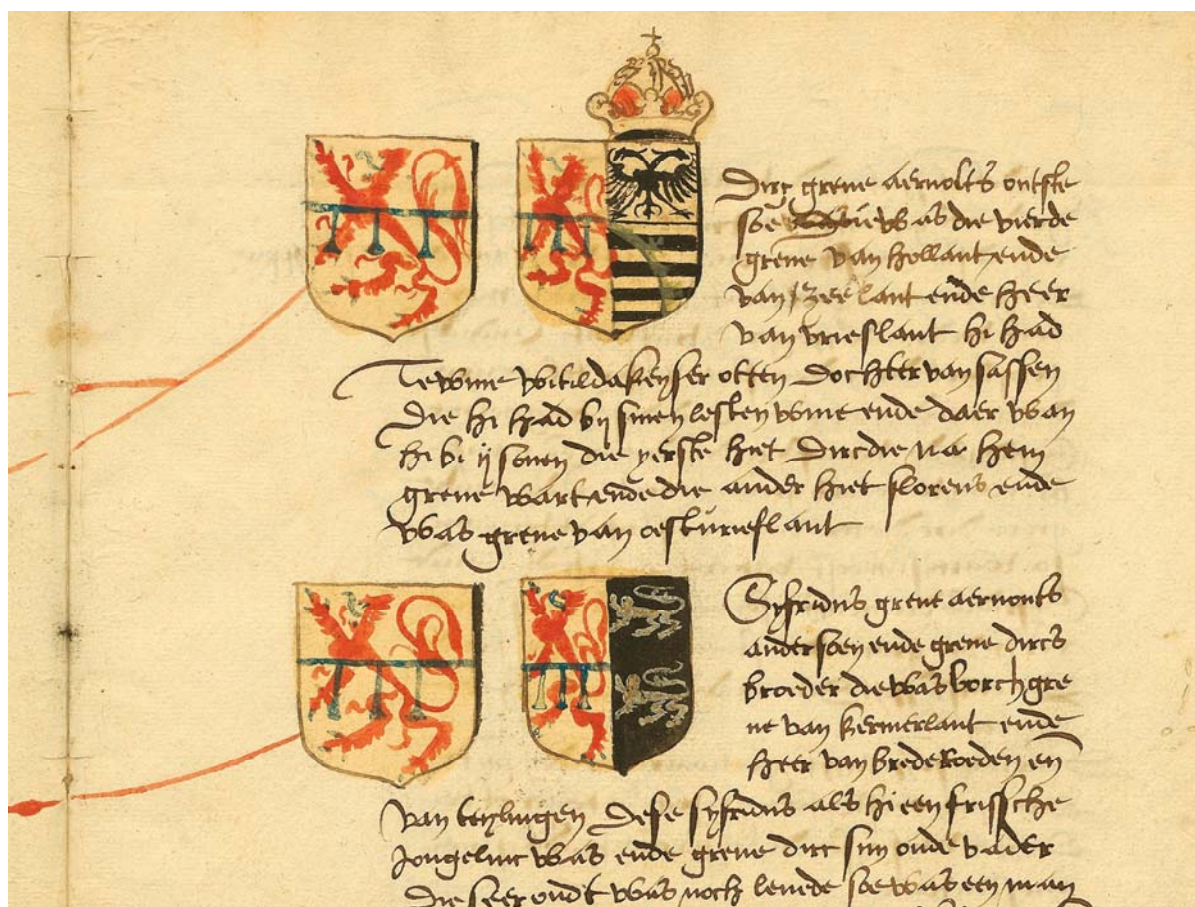 Dirc greue aernolts outste
soe was die vierde
greue van hollant ende
van zeelant ende heer
van vrieslant hi had
Te wiue witilda keyser otten dochter van sassen
die hi had bij sinen lesten wiue ende daer wan
hi bi ij sonen die yerste hiet dirc die na hem
greue wart ende die ander hiet florens ende
was greue van oestvrieslant
Syfridus greue aernouts
ander soen ende greue dircs
broeder die was borchgre
ue van kermerlant ende
heer van brederoeden en
van teylingen Dese syfridus als hi een frissche
jongelinc was ende greue dirc sijn oude vader
die seer oudt was noch leuede soe was een man